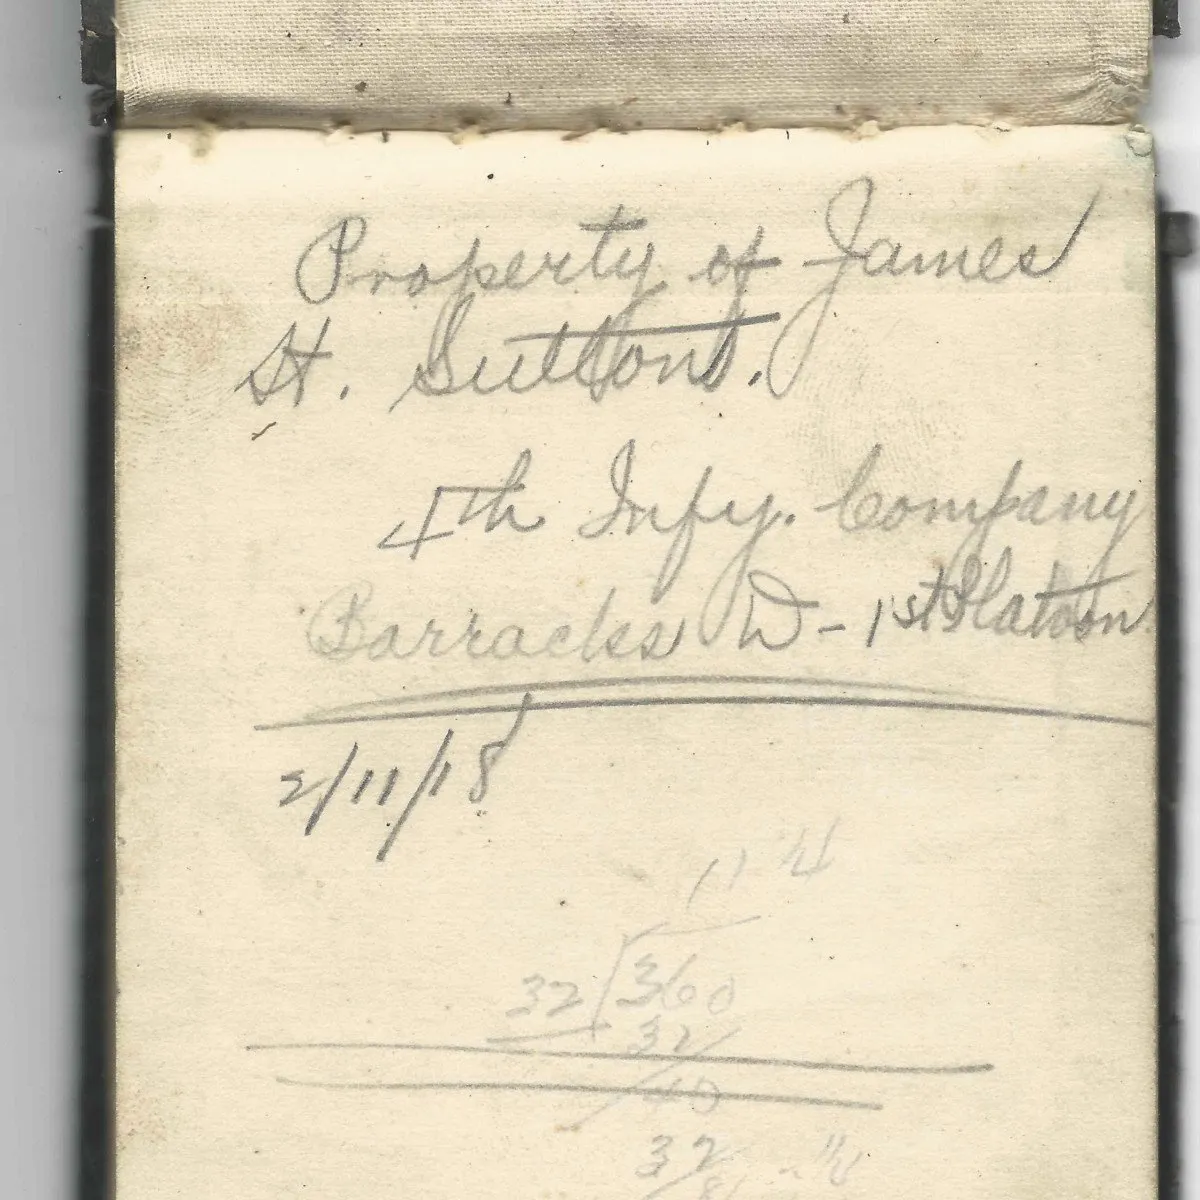 Property of James
H. Sutton.
4th Infy. Company
Barracks D - 1st Platoon
2/11/18
11 1/4
32 360
32
40
32
8